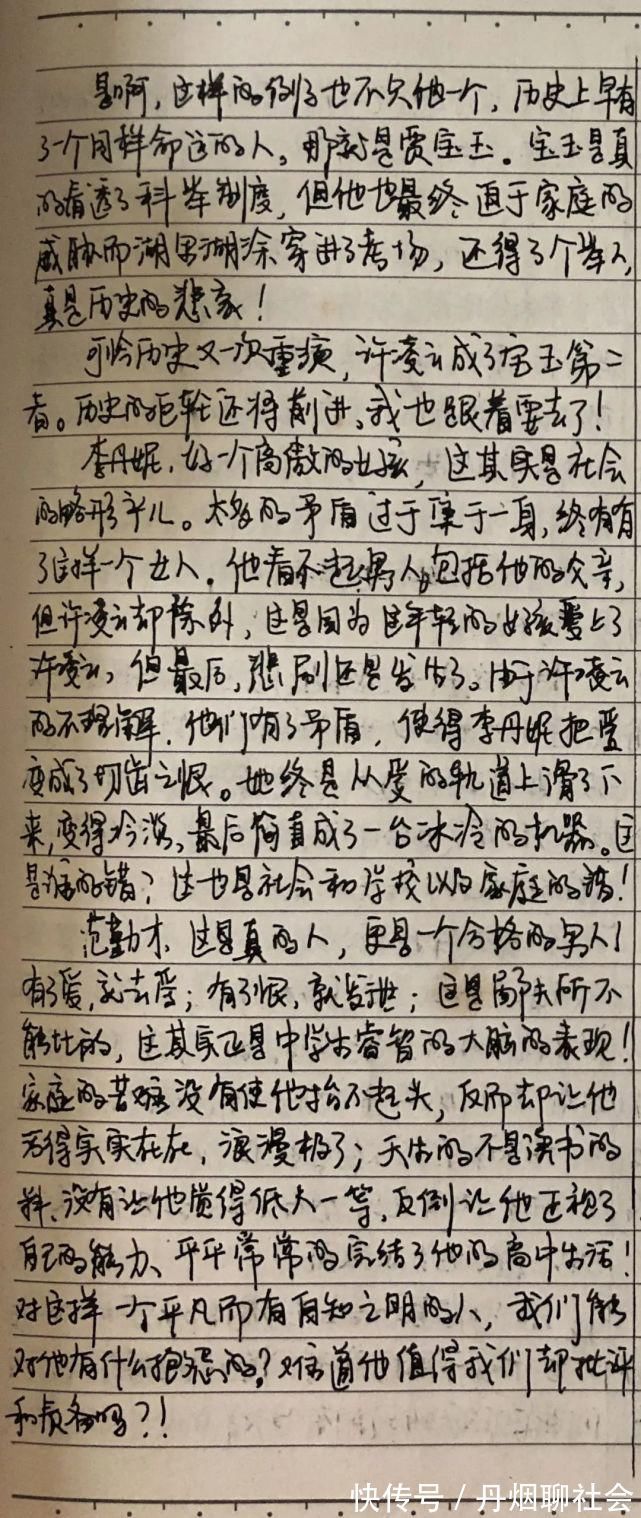 是啊，这样的例子也不欠他一个，历史上早有
了一个同样命运的人，那就是贾宝玉。宝玉是真
的看透了科举制度，但他也最终迫于家庭的
威胁而湖里湖涂穿进了考场，还得了个举人，
真是历史的悲哀！
可怜历史又一次重演，许凌云成了宝玉第二
者。历史的巨轮还将前进，我也跟着要去了！
李丹妮，好一个高傲的女孩，这其实是社会
的畸形产儿。太多的矛盾过于集于一身，终有有
了这样一个女人。他看不起男人，包括他的父亲，
但许凌云却除外，这是因为这年轻的女孩爱上了
许凌云，但最后，悲剧还是发生了。由于许凌云
的不理解，他们有了矛盾，使得李丹妮把爱
变成了切齿之恨。她终是从爱的轨道上滑了下
来，变得冷漠，最后简直成了一台冰冷的机器。这
是谁的错？这也是社会和学校以及家庭的错！
范勤才，这是真的人，更是一个合格的男人！
有了爱，就去爱；有了恨，就发泄；这是鄙夫所不
能比的，这其实正是中学生睿智的大脑的表现！
家庭的苦难没有使他抬不起头，反而却让他
活得实实在在，浪漫极了；天生的不是读书的
料，没有让他觉得低人一等，反倒让他正视了
自己的能力、平平常常的完结了他的高中生活！
对这样一个平凡而有自知之明的人，我们能
对他有什么抱怨的？难道他值得我们却批评
和责备吗？！
快传号／丹烟聊社会